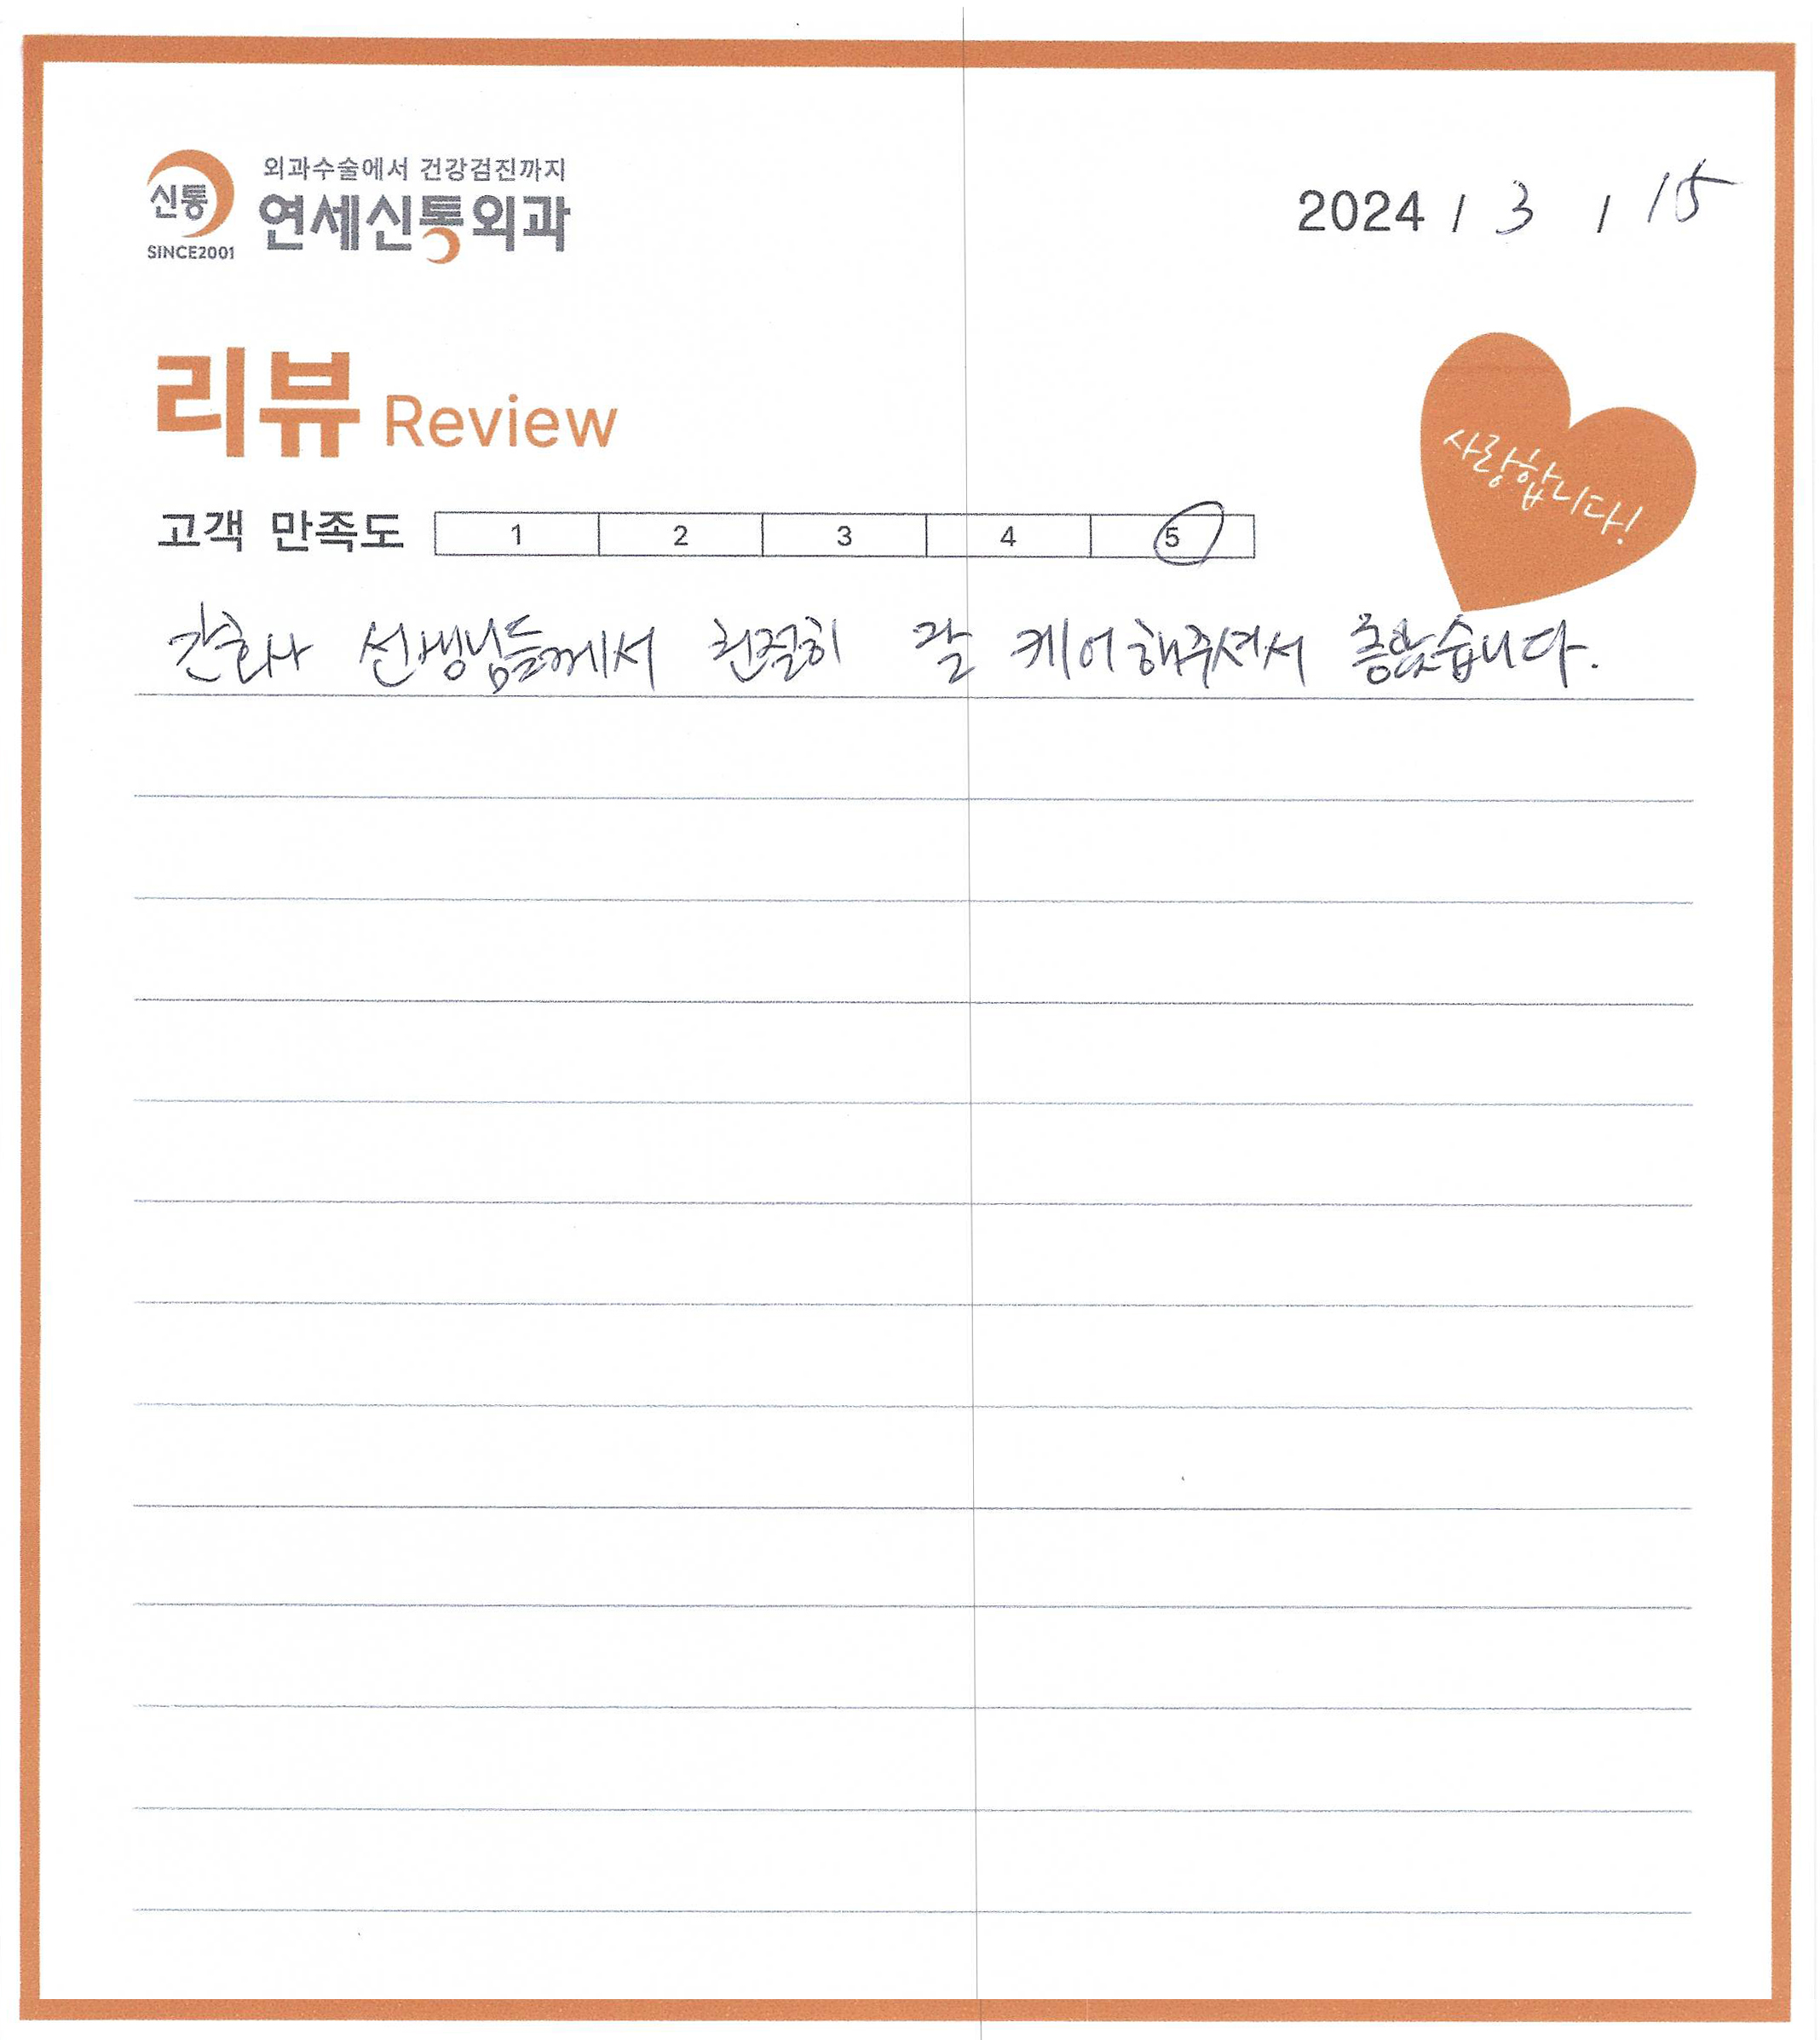 신통
SINCE2001
외과수술에서 건강검진까지
연세신통외과
2024 / 3 / 15
리뷰 Review
사랑합니다!
고객 만족도 1 2 3 4 5
간호사 선생님들께서 친절히 잘 케어해주셔서 좋았습니다.